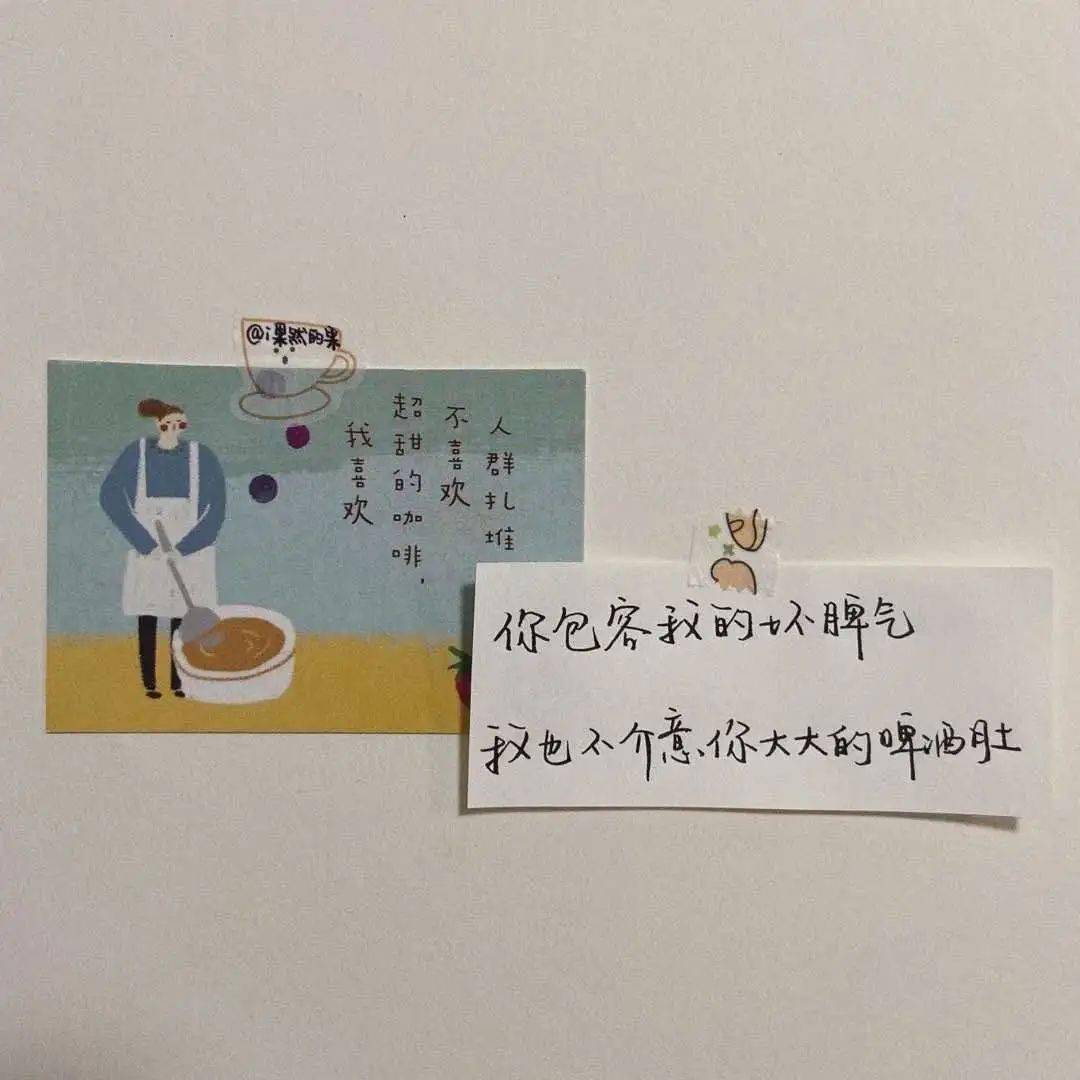 @i果然的果
人群扎堆
不喜欢
超甜的咖啡，
我喜欢
你包容我的坏脾气
我也不介意、你大大的啤酒肚